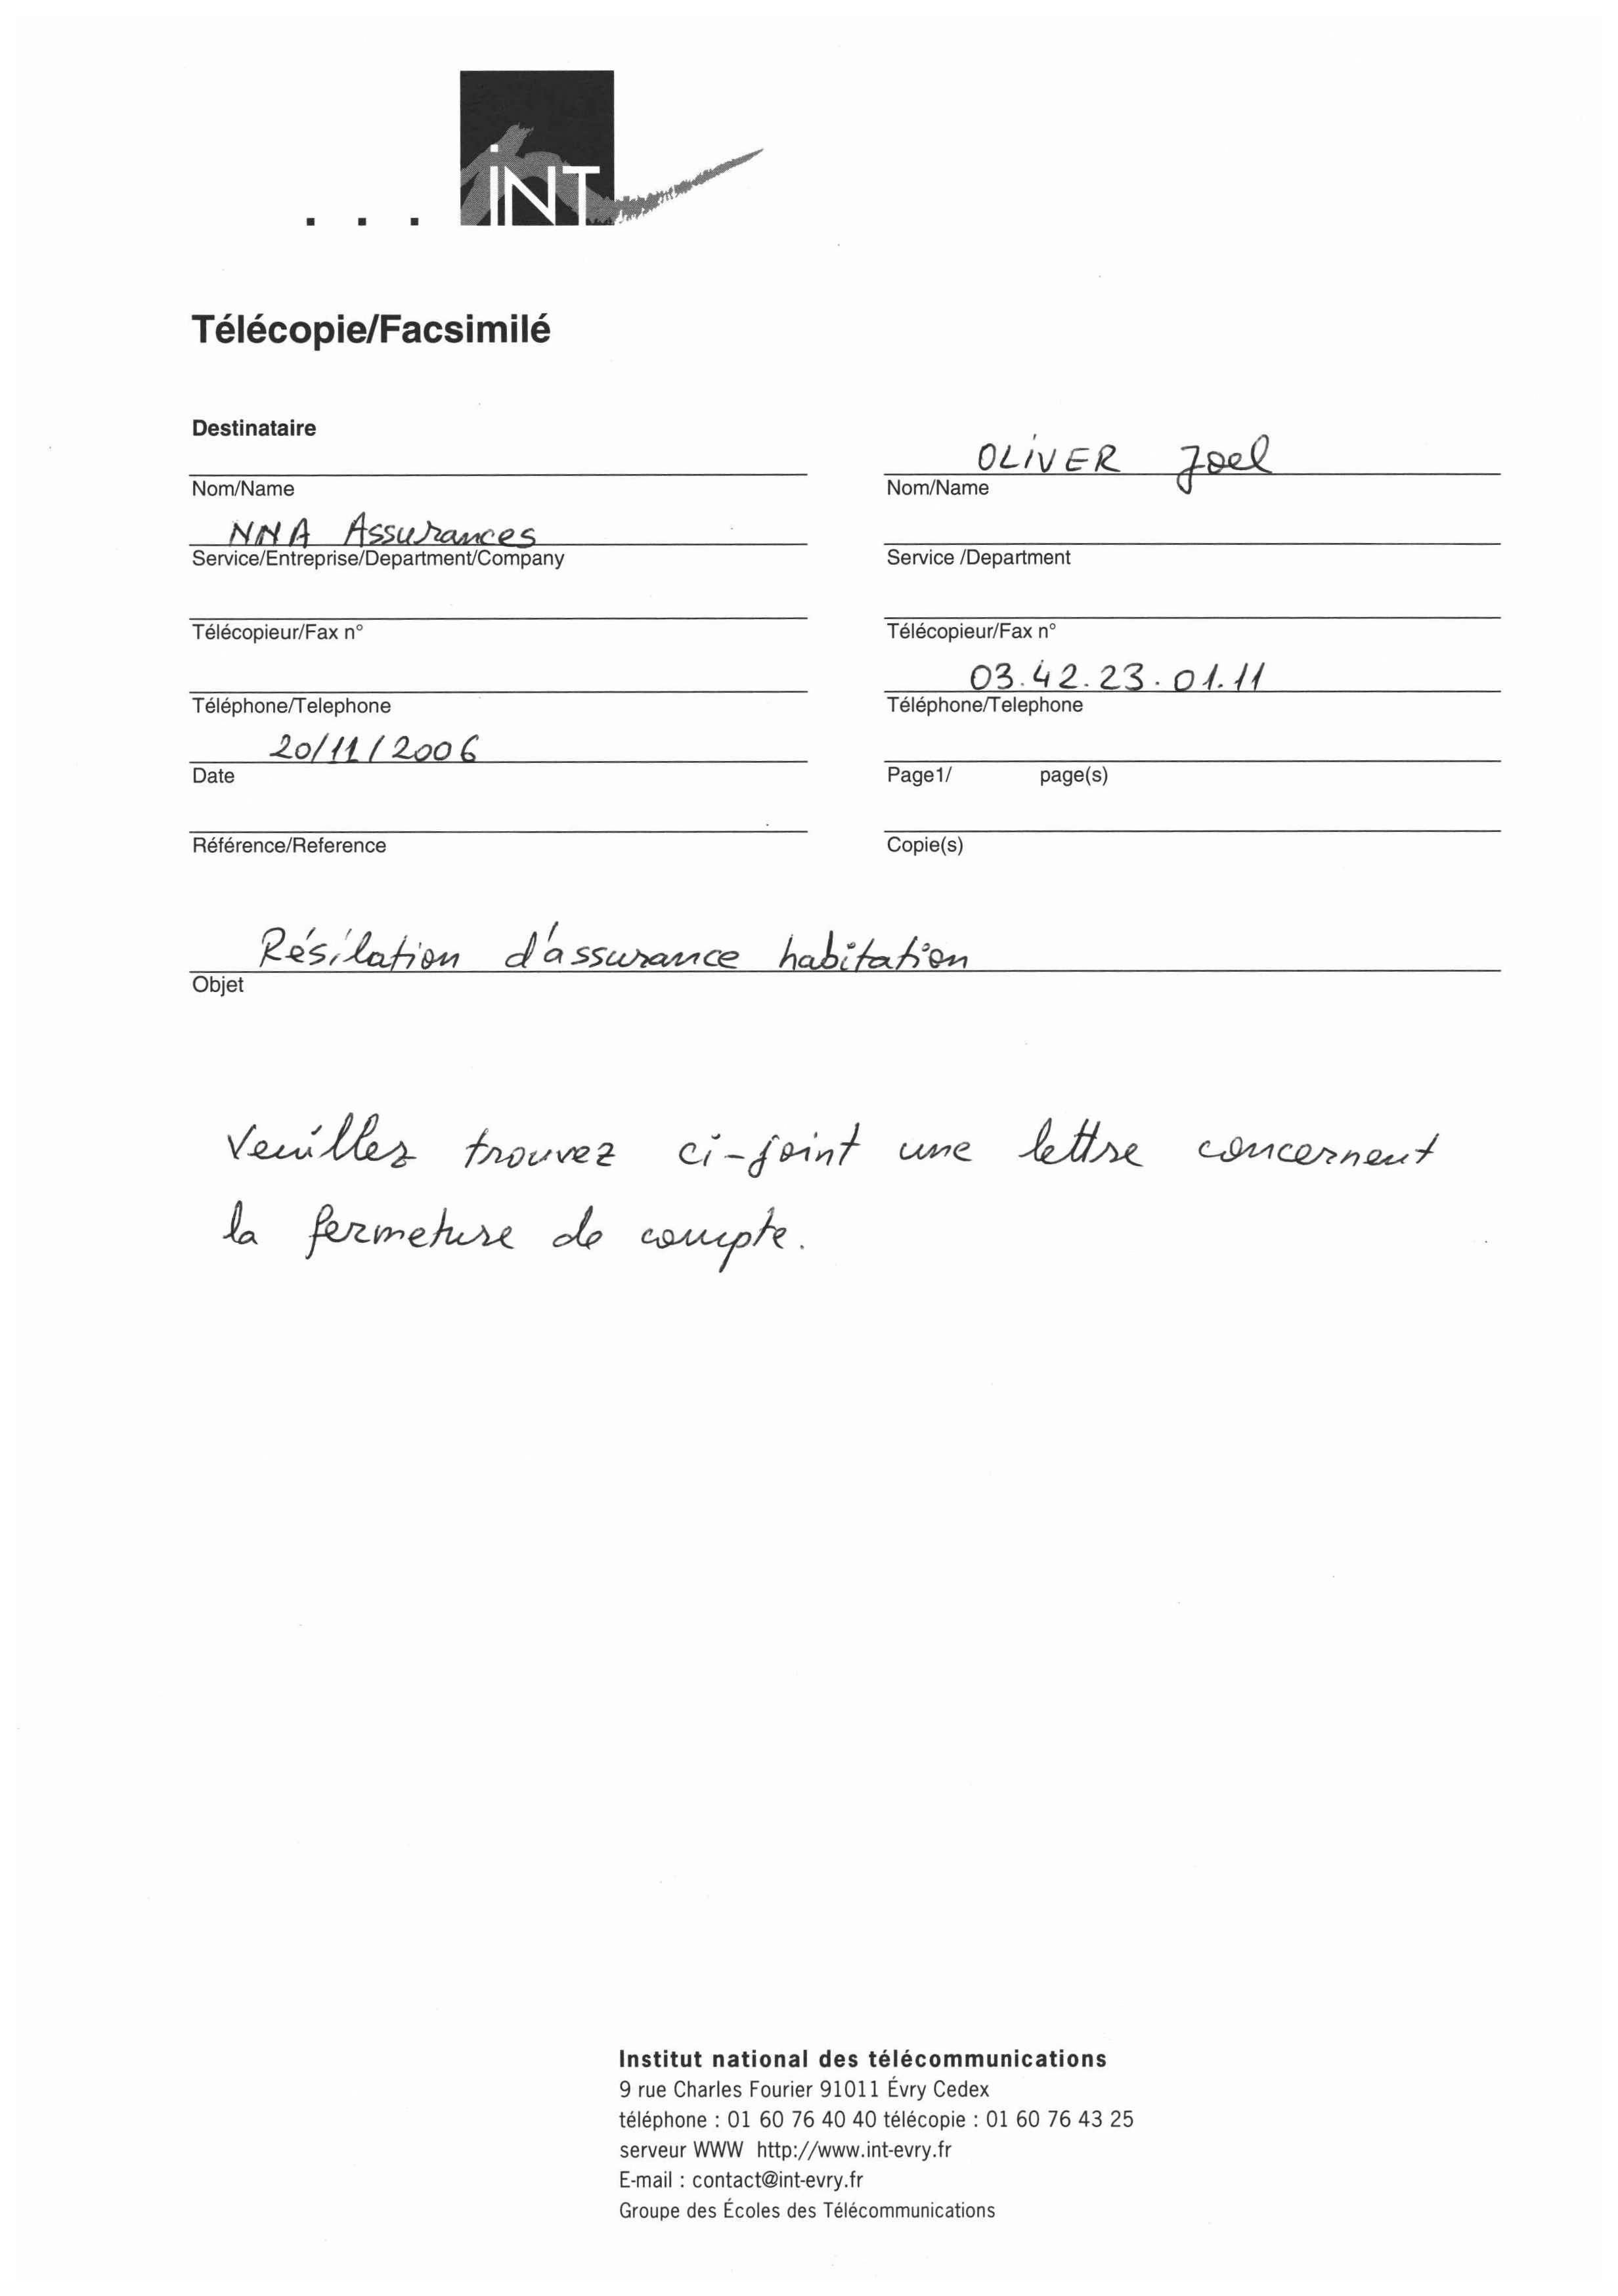 iNT
Télécopie/Facsimilé
Destinataire
Nom/Name
NNA Assurances
Service/Entreprise/Department/Company
Télécopieur/Fax n°
Téléphone/Telephone
20/11/2006
Date
Référence/Reference
OLIVER Joel
Nom/Name
Service /Department
Télécopieur/Fax n°
03.42.23.01.11
Téléphone/Telephone
Page1/ page(s)
Copie(s)
Résilation d'assurance habitation
Objet
Veuillez trouvez ci-joint une lettre concernent
la fermeture de compte.
Institut national des télécommunications
9 rue Charles Fourier 91011 Évry Cedex
téléphone : 01 60 76 40 40 télécopie : 01 60 76 43 25
serveur WWW http://www.int-evry.fr
E-mail : contact@int-evry.fr
Groupe des Écoles des Télécommunications